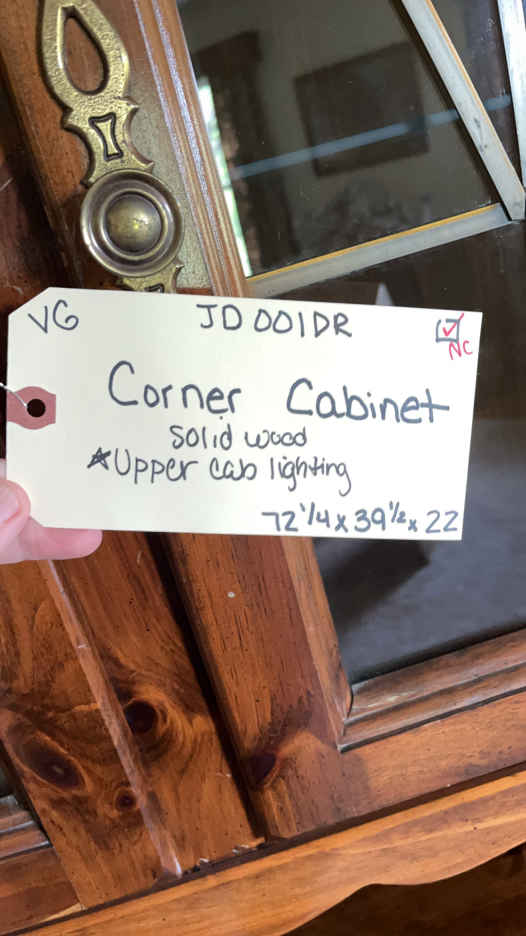 VG JD001DR ☑
NC
Corner Cabinet
solid wood
★Upper cab lighting
72 1/4 x 39 1/2 x 22